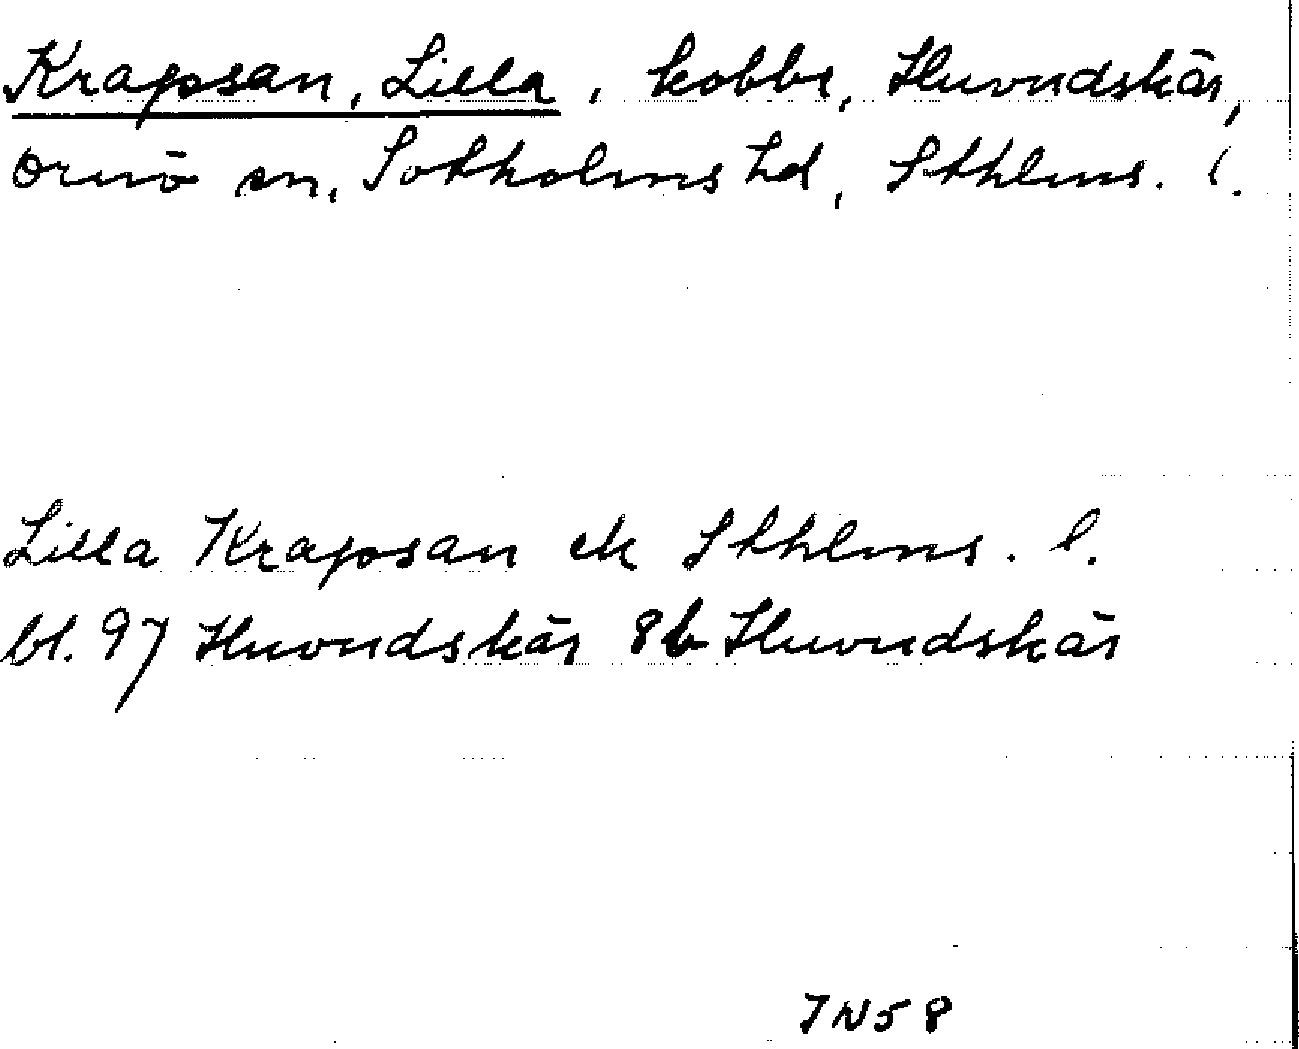 Krapsan, Lilla, kobbe, Huvudskär,
Ornö sn, Sotholms hd, Sthlms. l.
Lilla Krapsan ek Sthlms. l.
bl. 97 Huvudskär 8b Huvudskär
JN58